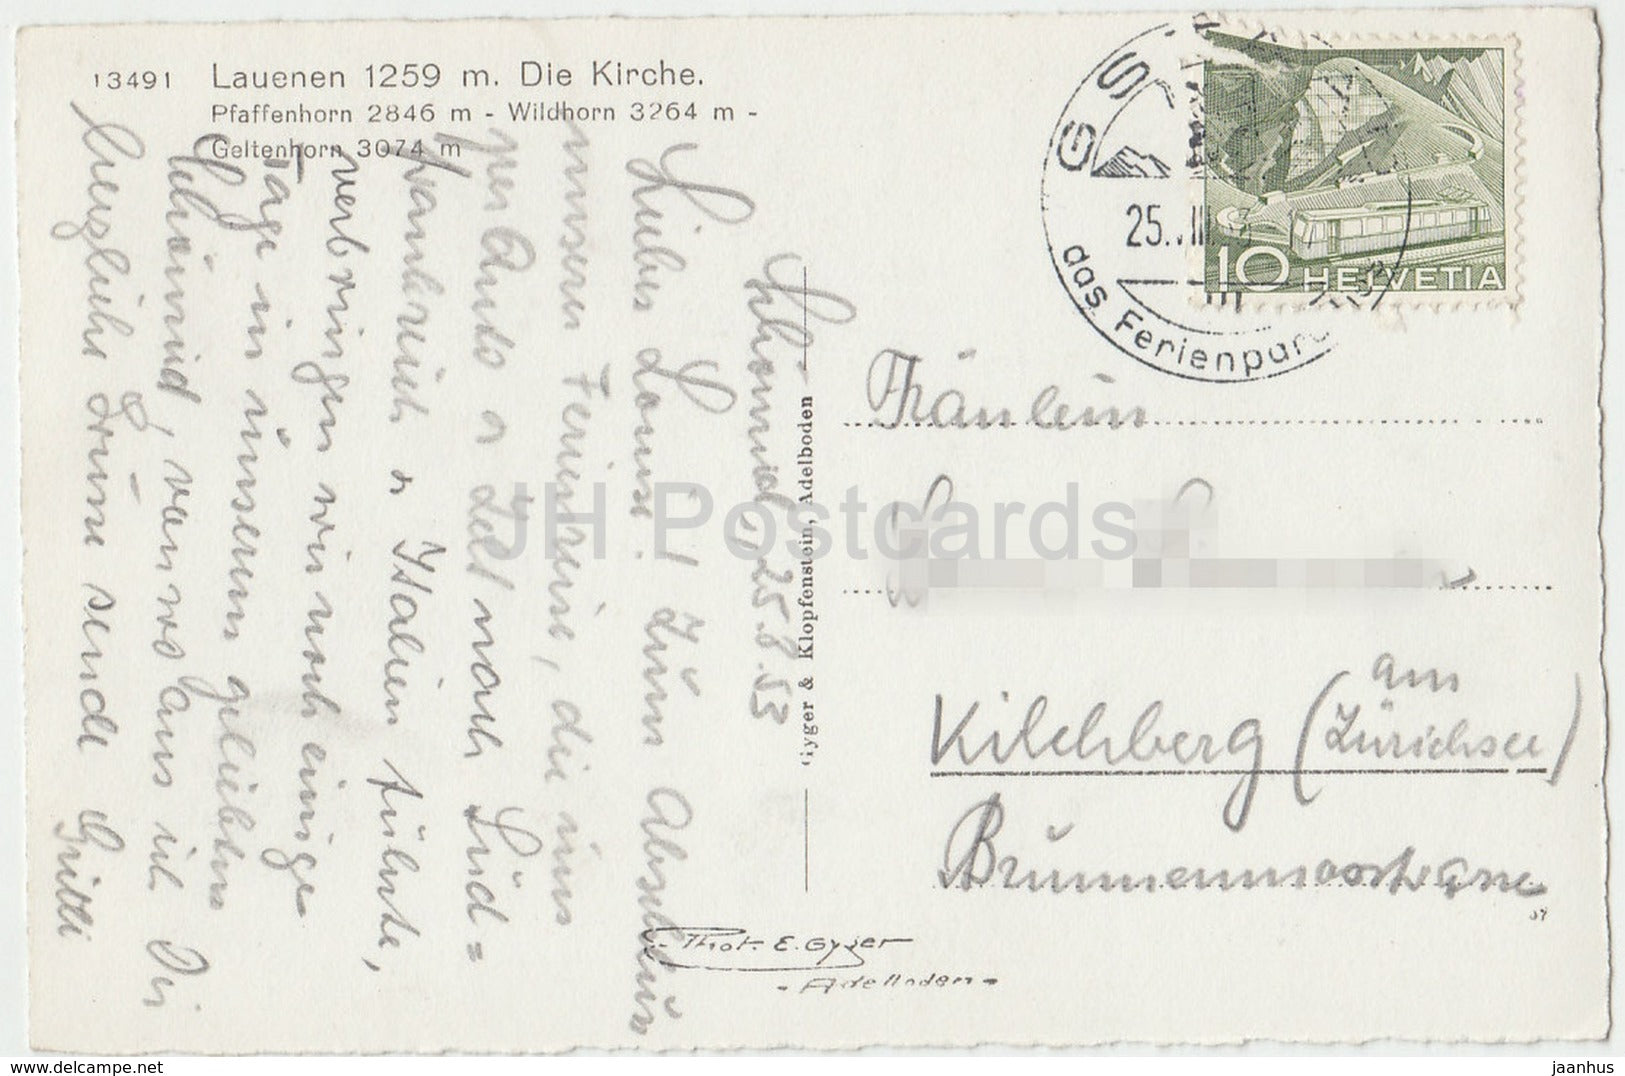 13491 Lauenen 1259 m. Die Kirche.
Pfaffenhorn 2846 m - Wildhorn 3264 m -
Geltenhorn 3074 m
Schönried, 25.8.53
Liebes Louise! Zum Abschluss
unserer Ferienreise, die uns
per Auto & Zelt nach Süd=
frankreich & Italien führte,
verbringen wir noch einige
Tage in unserem geliebten
Schönried, von wo aus ich Dir
herzliche Grüsse sende Gritli
Gyger & Klopfenstein, Adelboden
Phot. E. Gyger
- Adelboden -
GS
25. VIII
das Ferienpar
10 HELVETIA
Fräulein
Kilchberg (am Zürichsee)
Brunnenmoosstrasse
JH Postcards
jaanhus